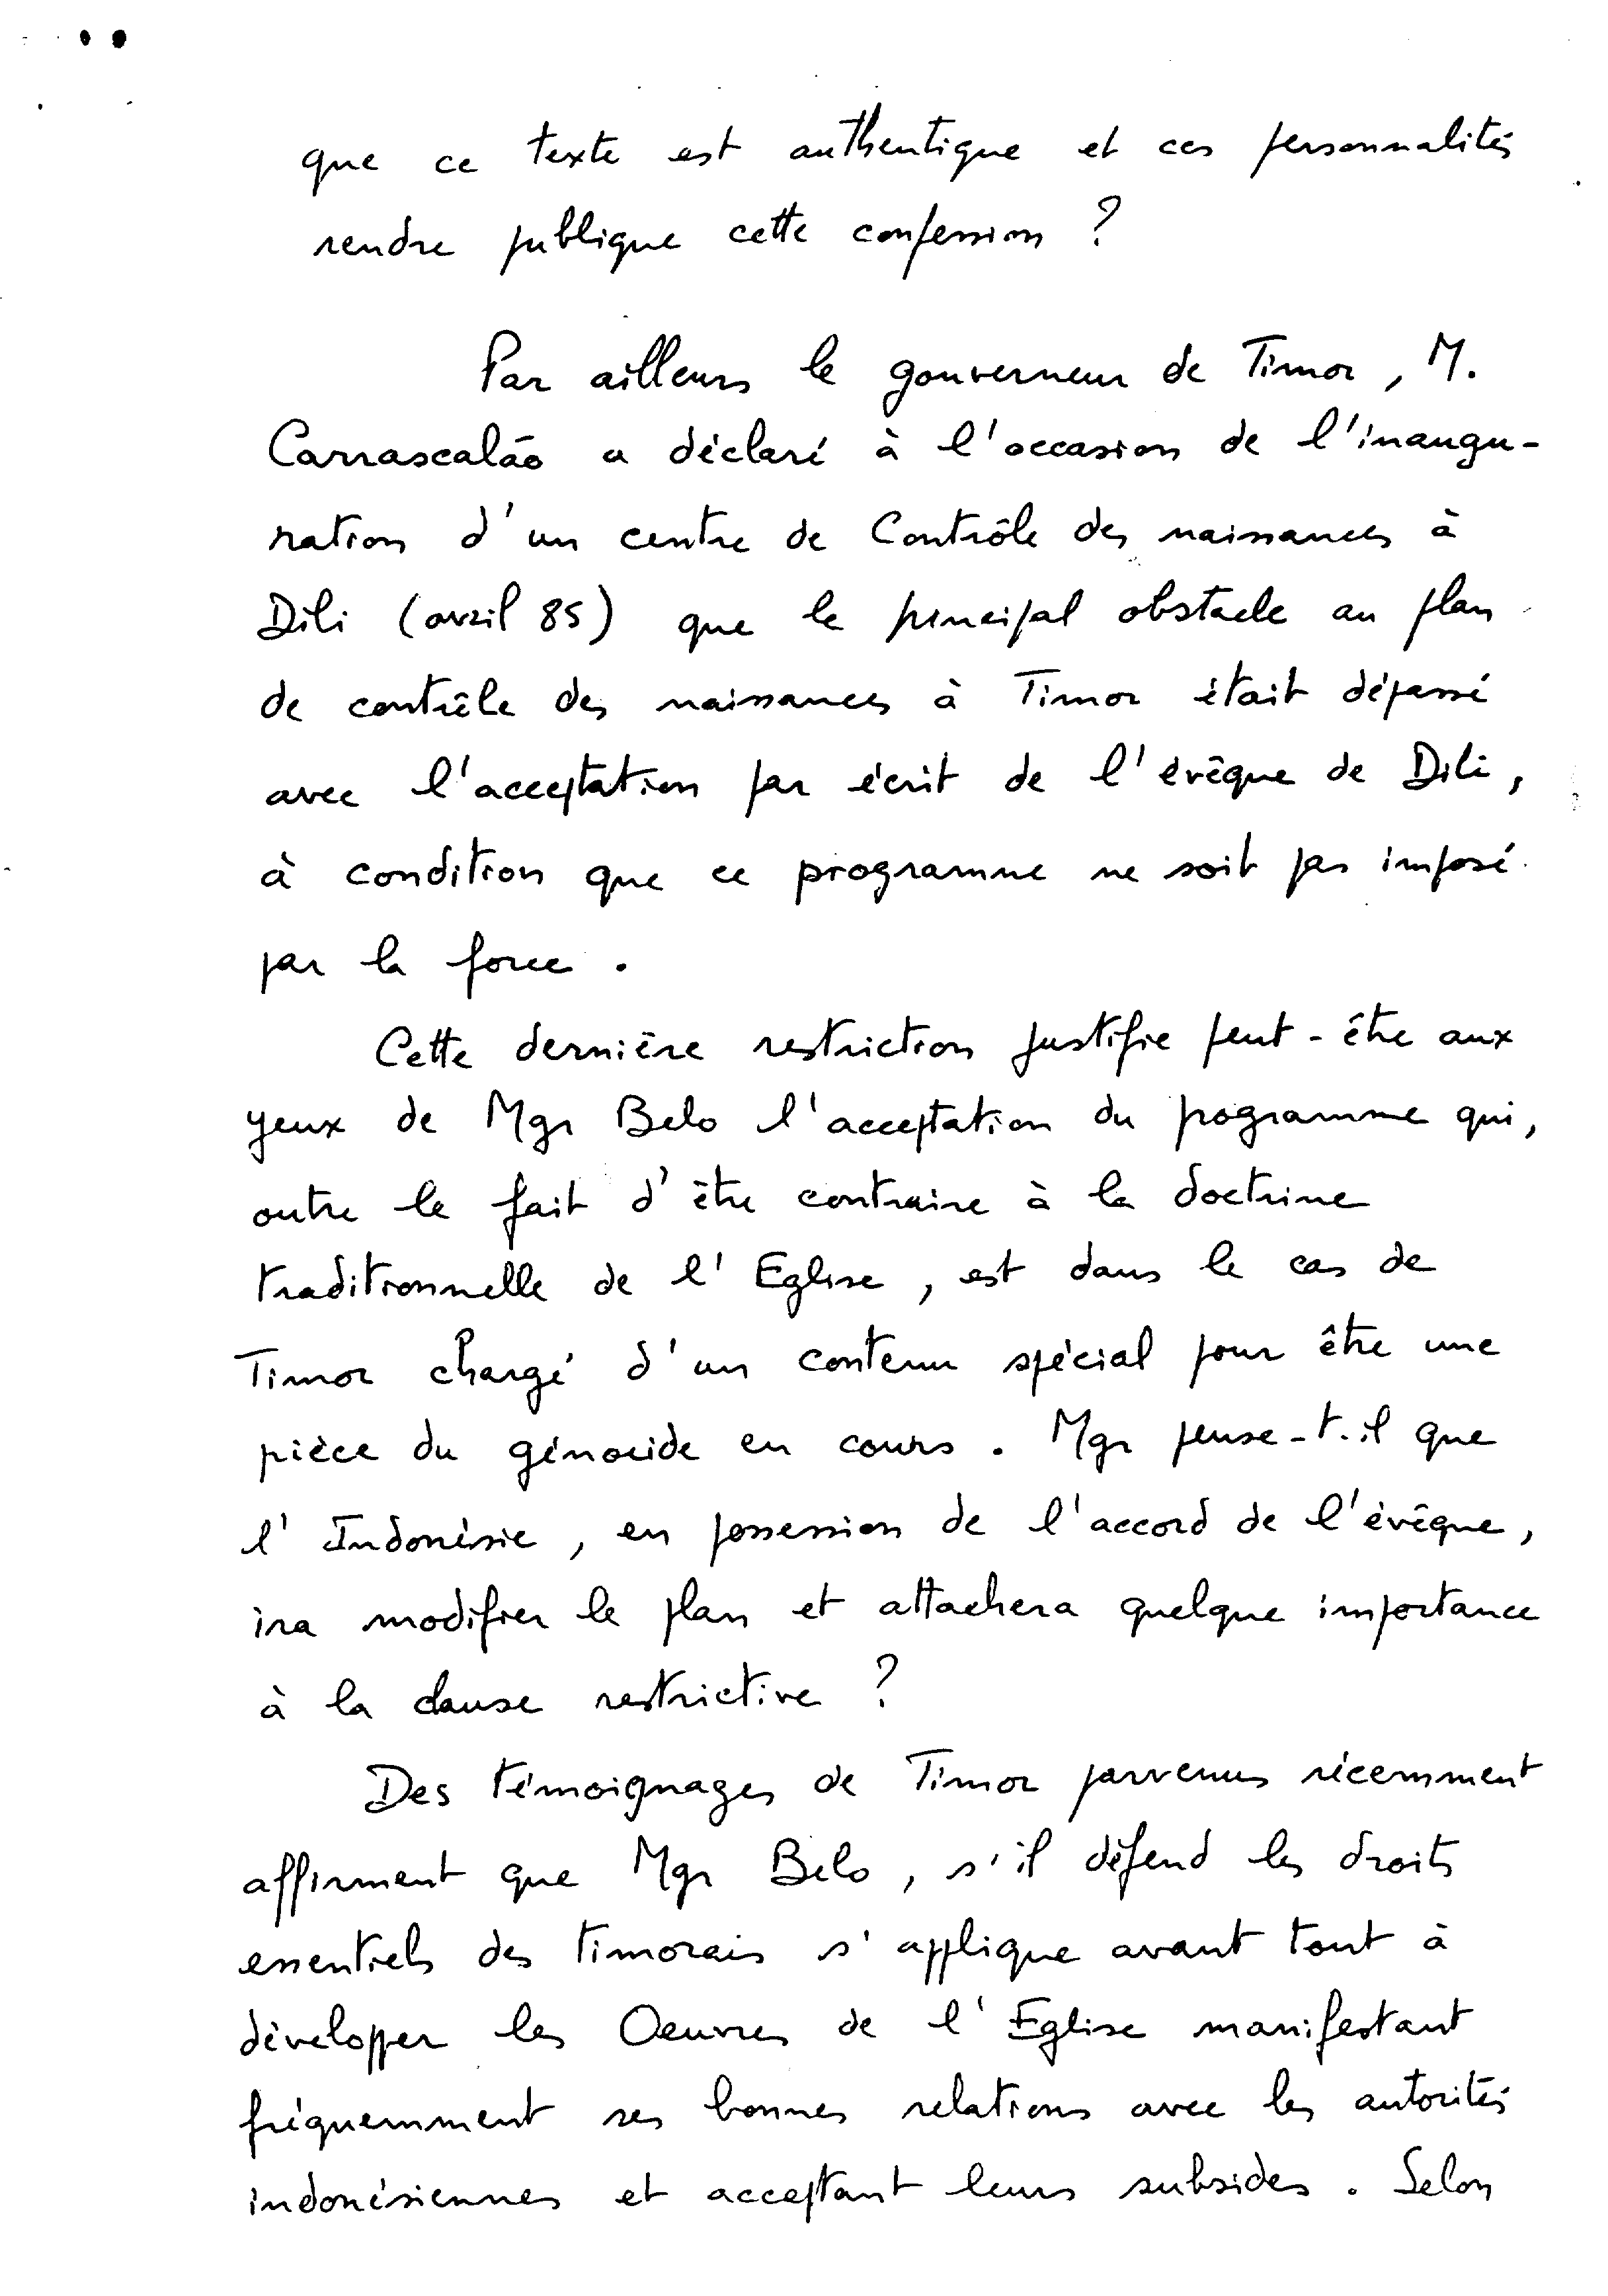 que ce texte est authentique et ces personnalités
rendre publique cette confession ?
Par ailleurs le gouverneur de Timor, M.
Carrascalão a déclaré à l'occasion de l'inaugu-
ration d'un centre de Contrôle des naissances à
Dili (avril 85) que le principal obstacle au plan
de contrôle des naissances à Timor était dépassé
avec l'acceptation par écrit de l'évêque de Dili,
à condition que ce programme ne soit pas imposé
par la force.
Cette dernière restriction justifie peut-être aux
yeux de Mgr Belo l'acceptation du programme qui,
outre le fait d'être contraire à la doctrine
traditionnelle de l'Eglise, est dans le cas de
Timor chargé d'un contenu spécial pour être une
pièce du génocide en cours. Mgr pense-t-il que
l'Indonésie, en possession de l'accord de l'évêque,
ira modifier le plan et attachera quelque importance
à la clause restrictive ?
Des témoignages de Timor parvenus récemment
affirment que Mgr Belo, s'il défend les droits
essentiels des timorais s'applique avant tout à
développer les Oeuvres de l'Eglise manifestant
fréquemment ses bonnes relations avec les autorités
indonésiennes et acceptant leurs subsides. Selon